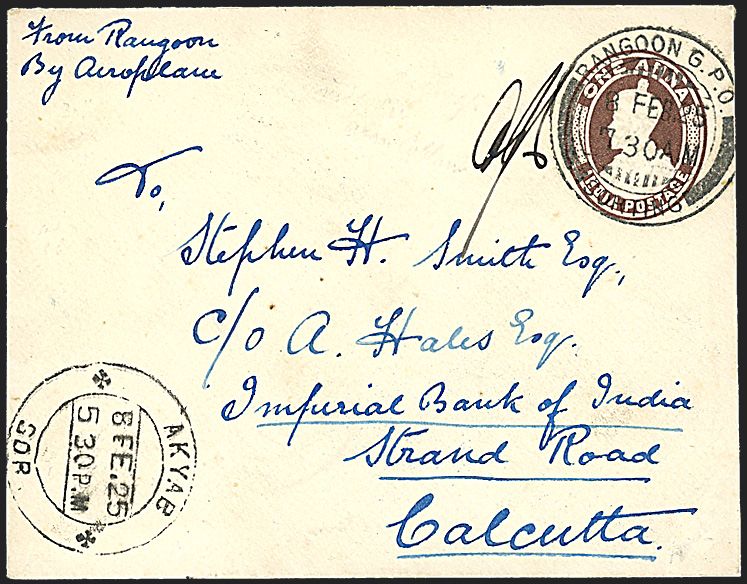 From Rangoon
By Aeroplane
RANGOON G.P.O.
8 FEB 25
7.30 A.M
ONE ANNA
INDIA POSTAGE
To,
Stephen H. Smith Esq.,
C/o A. Hales Esq.
Imperial Bank of India
Strand Road
Calcutta.
AKYAB
8 FE.25
5 30 P.M
SOR